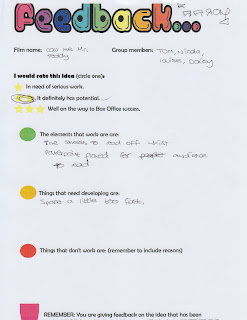 Feedback...
Film name: Mr.
Group members: Tom, Nicola,
Teddy
Louise, Daisy
I would rate this idea (circle one):
In need of serious work.
It definitely has potential.
Well on the way to Box Office success.
The elements that work are are:
to read off whilst
for audience
to read
Things that need developing are:
Spoke a little too fast.
Things that don't work are: (remember to include reasons)
REMEMBER: You are giving feedback on the idea that has been